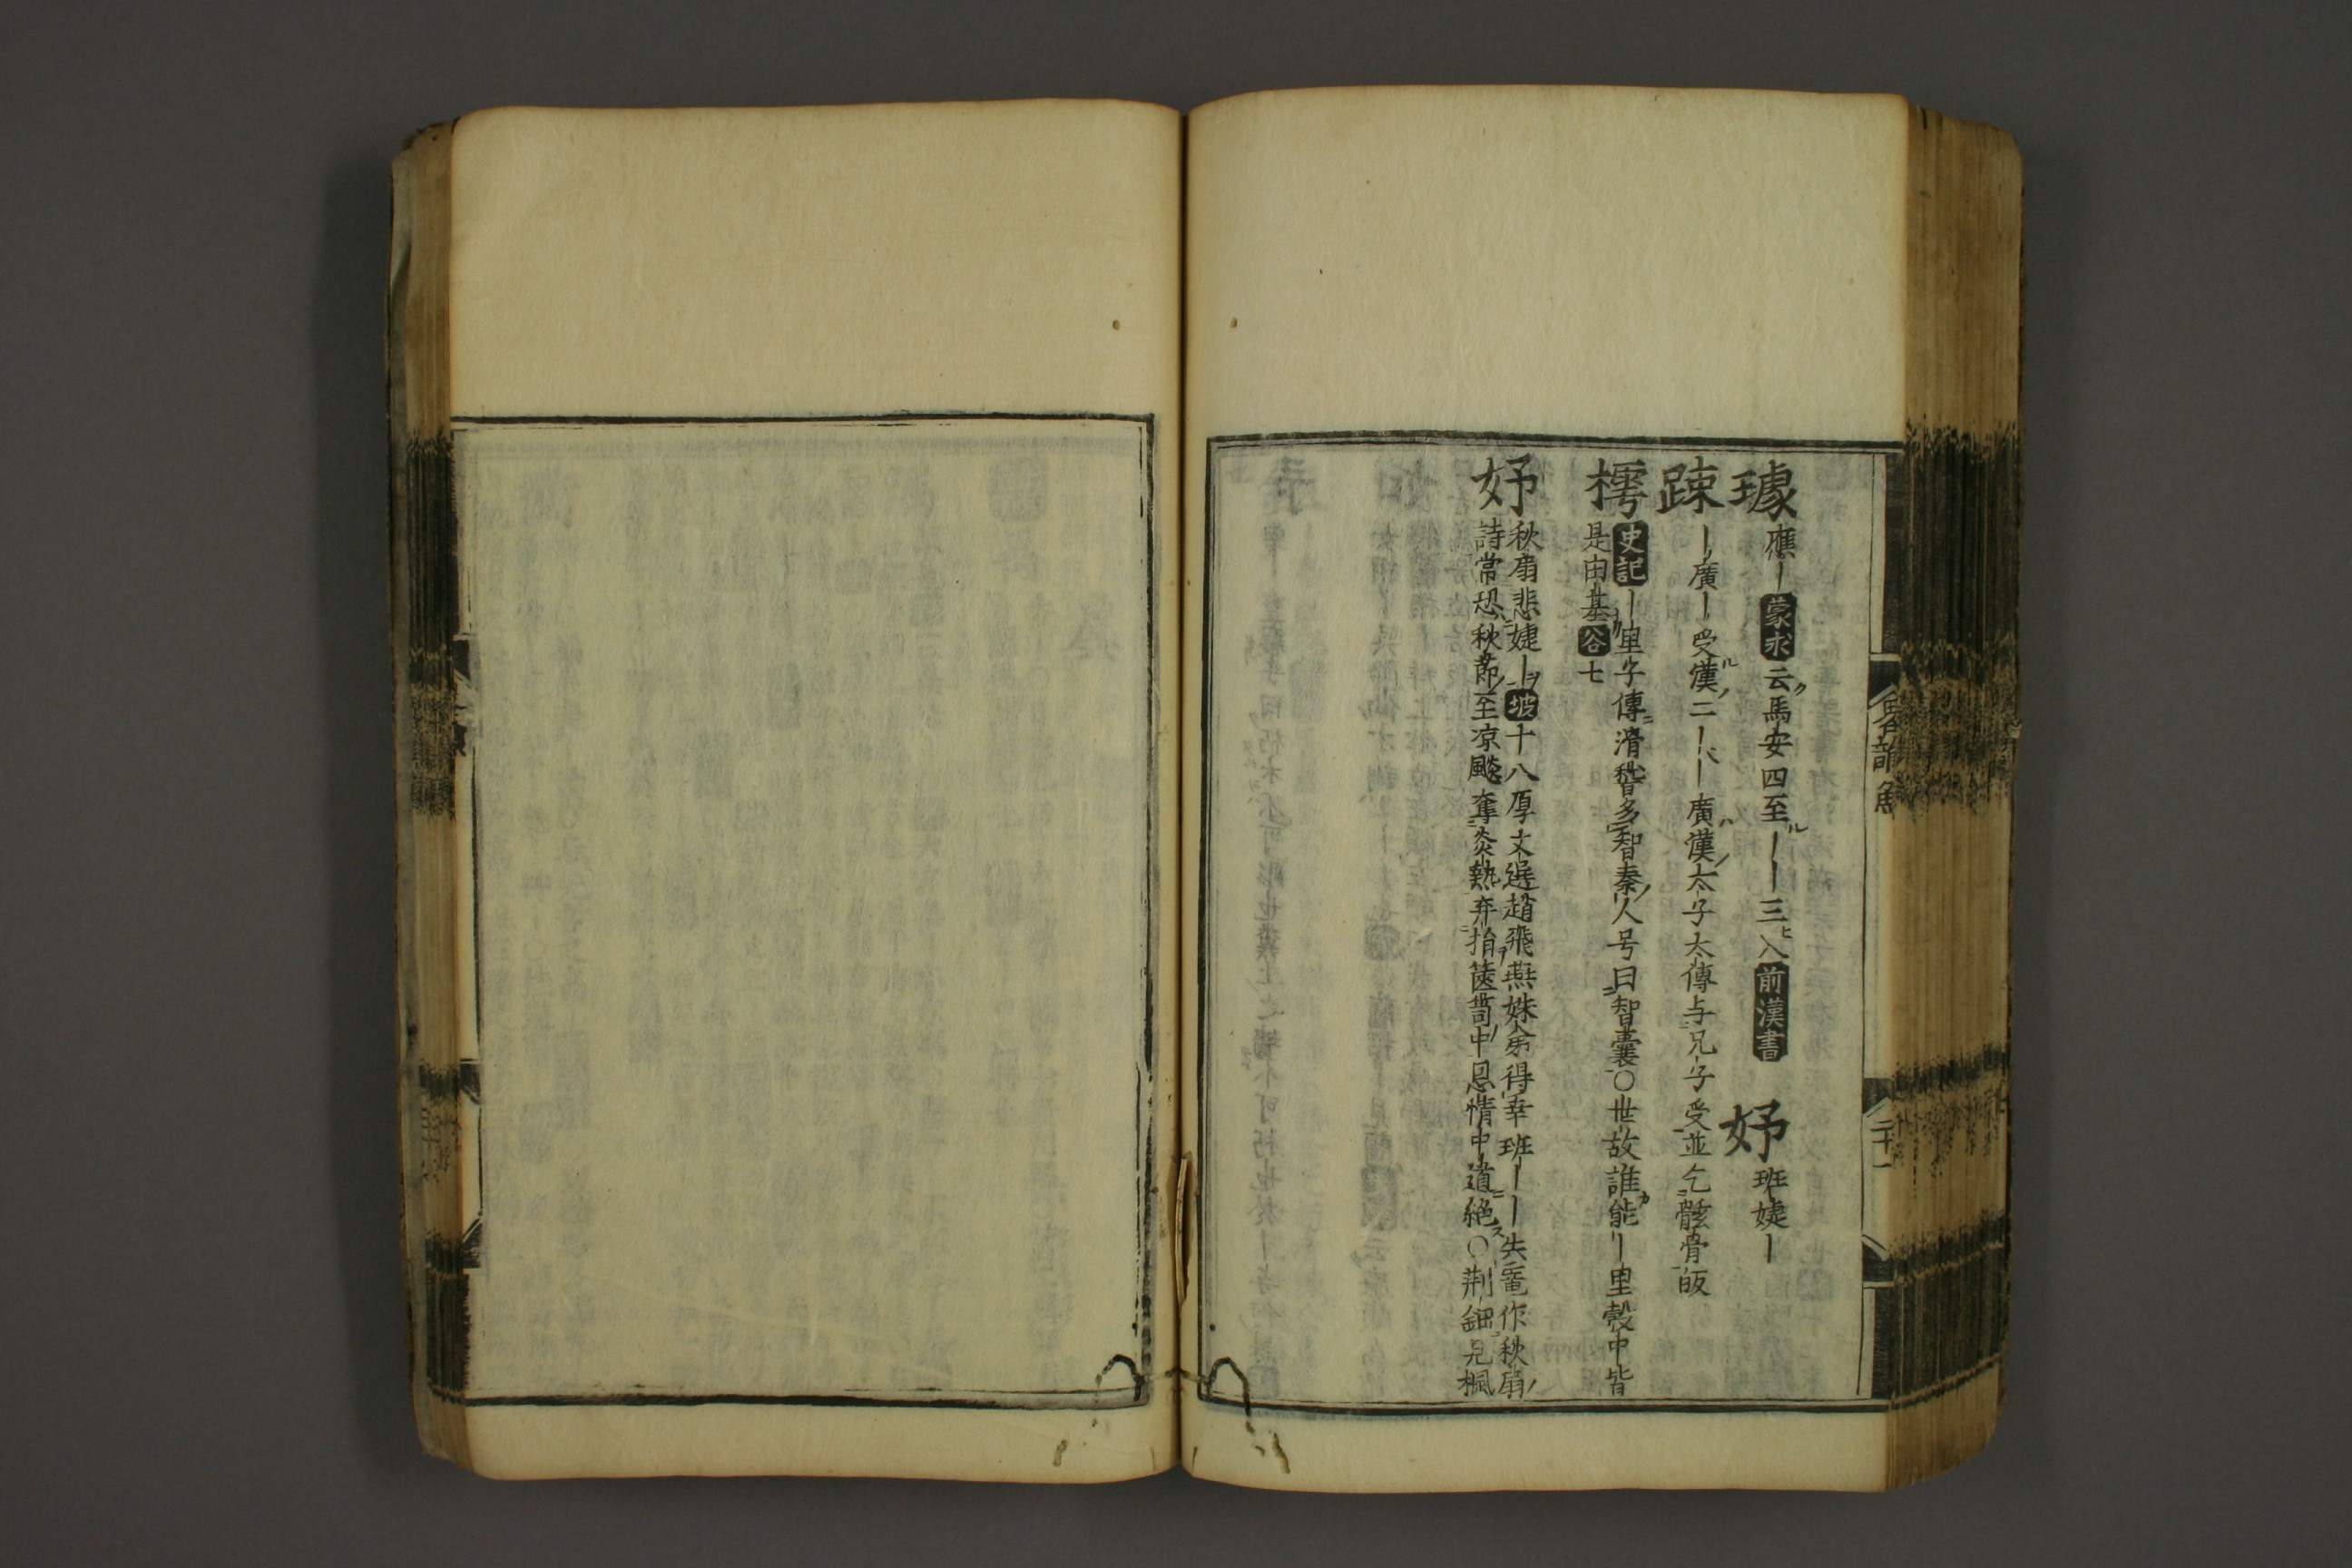 璩 應｜蒙求云馬安四至｜｜三入前漢書 妤 班婕｜
踈 ｜廣｜受漢二｜｜廣漢太子太傅与兄子受並乞骸骨皈
樗 史記｜里子傳滑稽多智秦人号曰智囊○世故誰能｜里殼中皆
是由基谷七
妤 秋扇悲婕｜坡十八厚文選趙飛燕姊弟得幸班｜｜失寵作秋扇
詩常恐秋節至凉飈奪炎熱弃捐篋笥中恩情中道絶○荆釵兄楓
略韻 魚
二十一